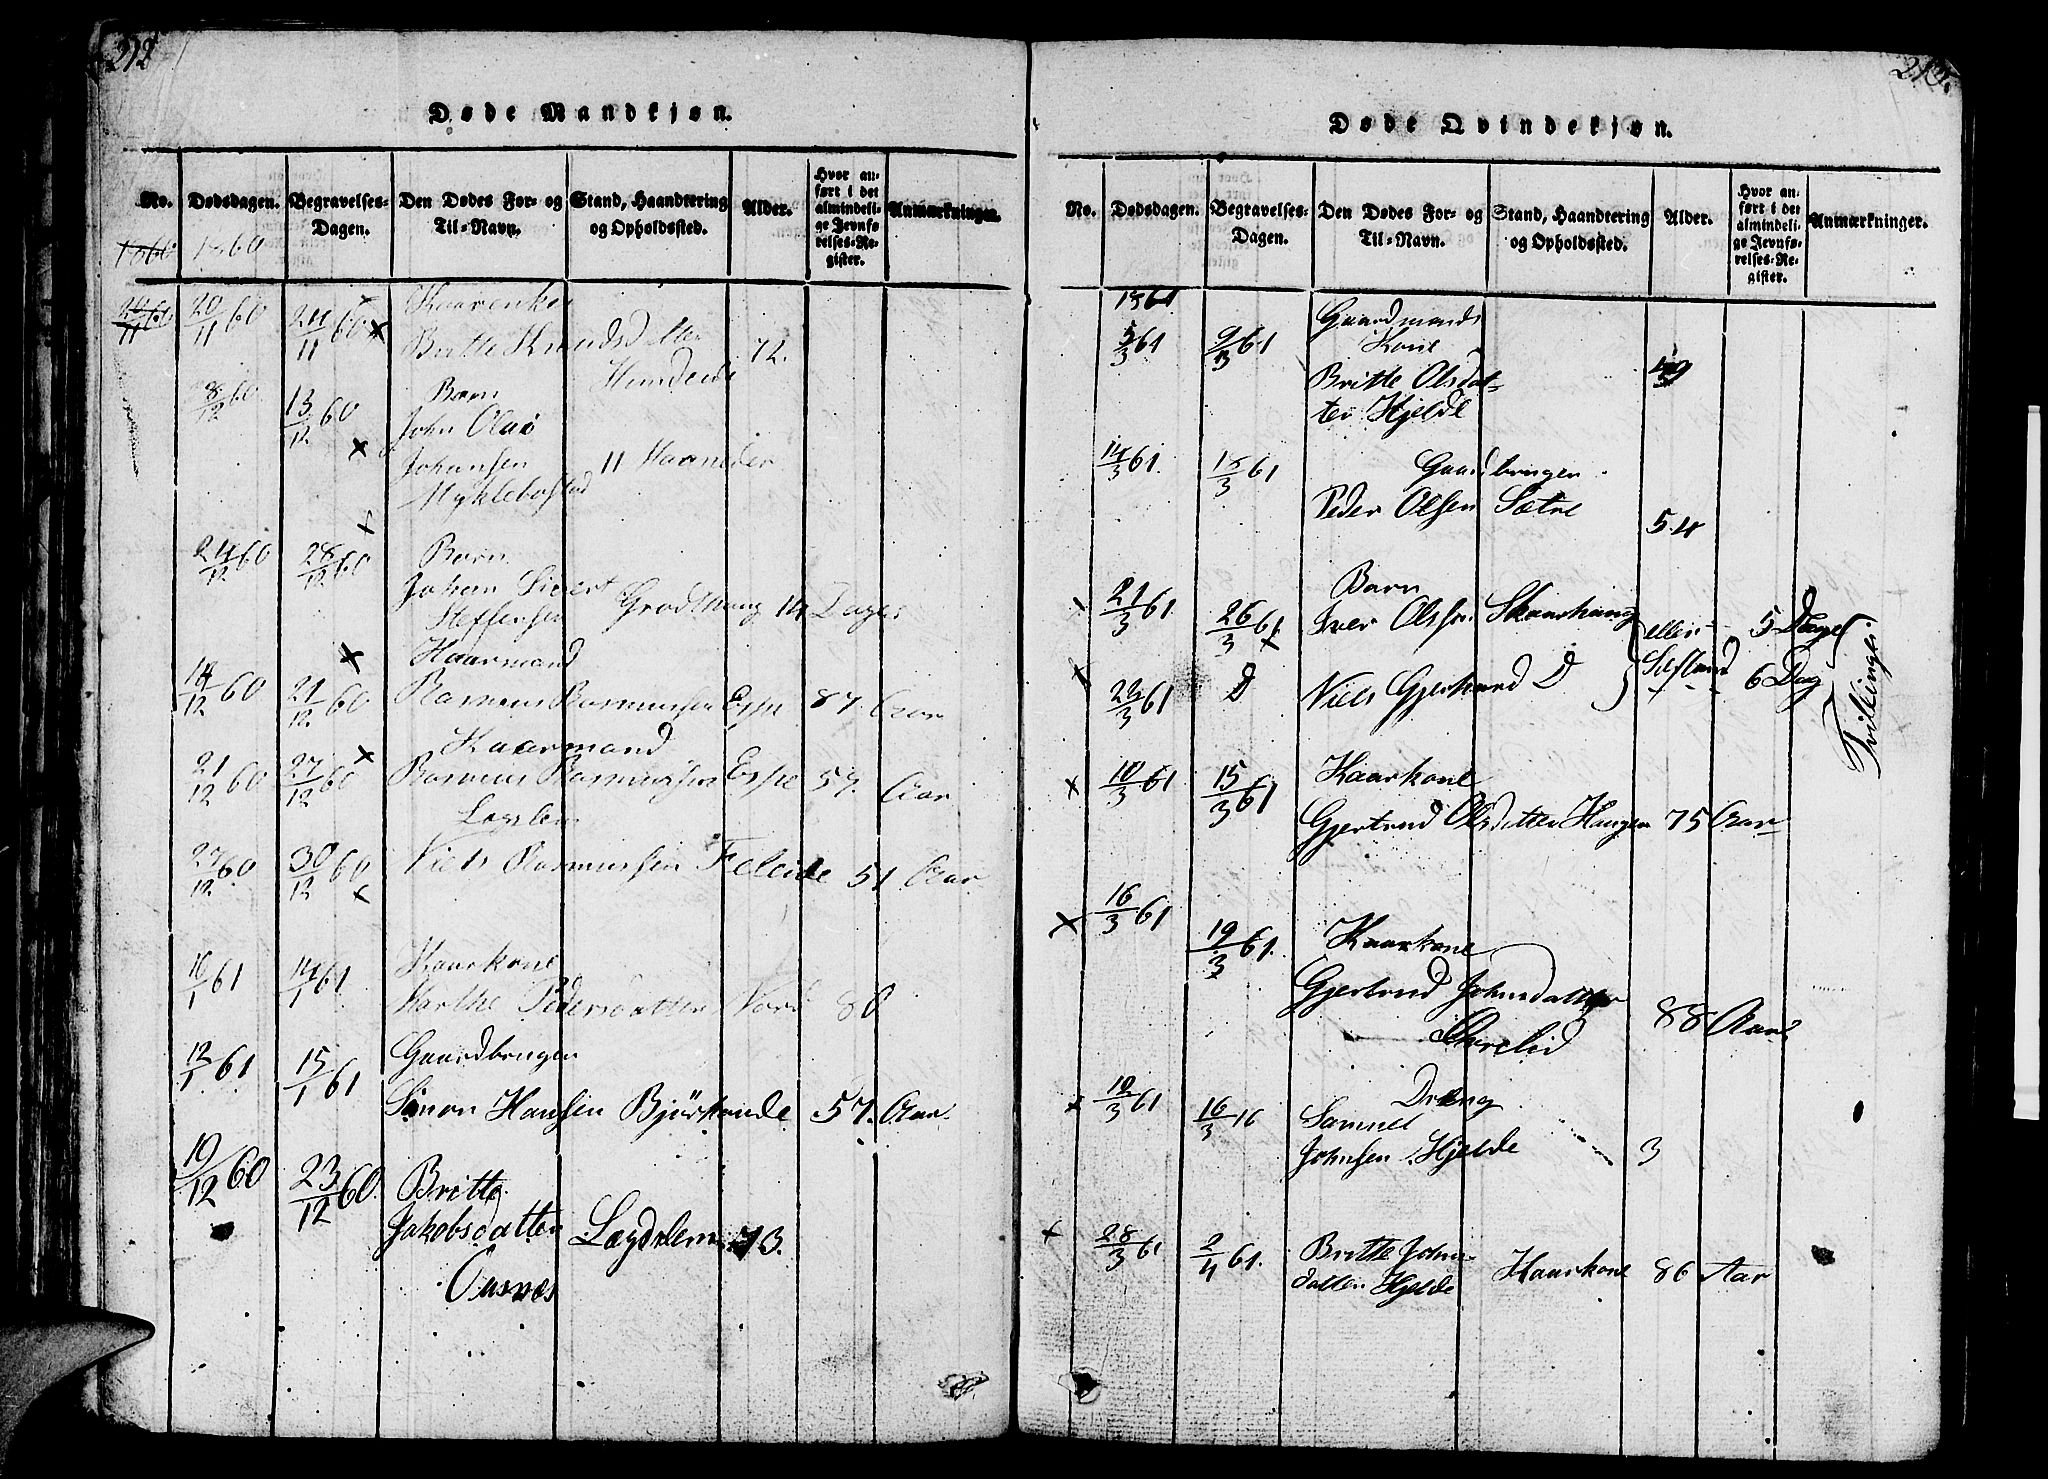 212
Døde Mandkjøn.
No. Dødsdagen. Begravelses-Dagen. Den Dødes For- og Til-Navn. Stand, Haandtering og Opholdssted. Alder. Hvor anført i det almindelige Jevnførelses-Register. Anmærkninger.
1860 1860
20/11 60 24/11 60 x
Britte Knudsdatter 72.
8/12 60 13/12 60 Barn
John Olai
x Johansen 11 Maaneder
Myklebostad
x
24/12 60 28/12 60 Barn
Johan Sivert
Steffensen Grodthaug 14 Dager
x Kaarmand
14/12 60 21/12 60 Rasmus Rasmussen Espe 87. Aar
x Kaarmand
21/12 60 27/12 60 Rasmus Rasmussen Espe 57. Aar
Lægslem
27/12 60 30/12 60 Niels Rasmussen Fleide 51 Aar
x
Kaarkone
10/1 61 14/1 61 Marthe Pedersdatter Nord 80
Gaardbruger
12/1 61 15/1 61
Simon Hansen Bjørstende 57. Aar
19/12 60 23/12 60. Britte
Jakobsdatter Lægdslem 73.
Aasnæs
213.
Døde Qvindekjøn.
No. Dødsdagen. Begravelses-Dagen. Den Dødes For- og Til-Navn. Stand, Haandtering og Opholdssted. Alder. Hvor anført i det almindelige Jevnførelses-Register. Anmærkninger.
1861
5/3 61 9/3 61 Gaardmands
Kone
Britte Olsdat-
ter Hjelde
14/3 61. 18/3 61 Gaardbruger
Peder Olsen Sætre
5.4
Barn
x 21/3 61 26/3 61 x Iver Olsen Skaarhaug 5 Dage
x 22/3 61 D Niels Gjerhard D 6 Dag
Tvillinger
x 10/3 61 15/3 61 Kaarkone
Gjertrud Olsdatter Haugen 75 Aar
x 16/3 61
19/3 61. Kaarkone
Gjertrud Johnsdatter
88 Aar
x 10/3 61 Dreng
16/3 16 Samuel
Johnsen Hjelde 3
x 28/3 61 2/4 61. Britte Johns-
datter Hjelde Kaarkone 86 Aar